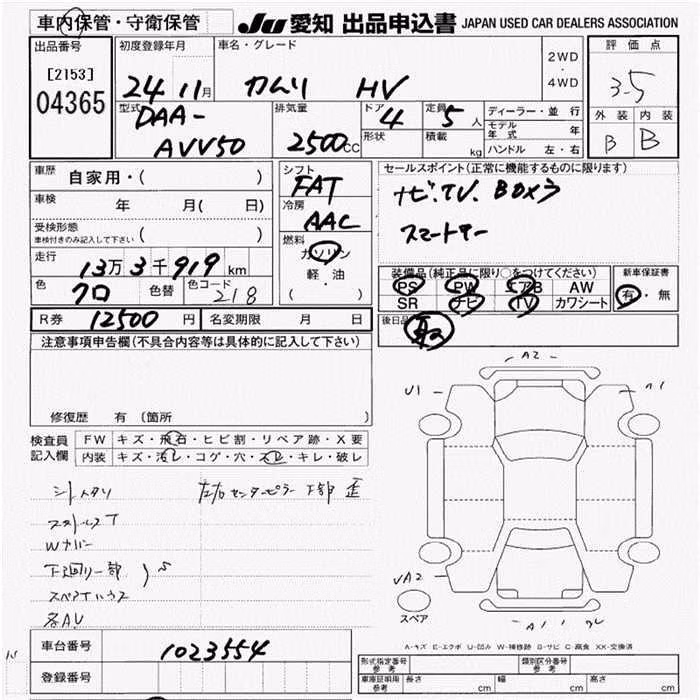 車内保管・守衛保管
JU 愛知 出品申込書 JAPAN USED CAR DEALERS ASSOCIATION
出品番号
[2153]
04365
初度登録年月
24 11月
車名・グレード
カムリ HV
2WD
・
4WD
評価点
3.5
外装 内装
B B
型式
DAA-
AVV50
排気量
2500cc
ドア
4
形状
定員
5人
積載
kg
ディーラー・並行
モデル年式 年
ハンドル 左・右
車歴 自家用・( )
車検 年 月( 日)
受検形態
車検付きのみ記入して下さい ( )
走行
13万3千919km
色
クロ
色替
色コード
218
シフト
FAT
冷房
AAC
燃料
ガソリン
軽・油
( )
セールスポイント(正常に機能するものに限ります)
ナビ.TV. BOXラ
スマートキー
装備品(純正品に限り○をつけてください)
PS PW エアB AW
SR ナビ TV カワシート
新車保証書
有・無
R券 12500円
名変期限 月 日
後日品
注意事項申告欄(不具合内容等は具体的に記入して下さい)
修復歴 有(箇所 )
検査員記入欄
FW キズ・飛石・ヒビ割・リペア跡・X要
内装 キズ・汚レ・コゲ・穴・スレ・キレ・破レ
左右センターピラー下部 歪
Wカバー
下廻り一部 S
A2
U1
A1
A2
スペア
A-キズ E-エクボ U-凹み W-補修跡 S-サビ C-腐食 XX-交換済
車台番号 1023554
登録番号
形式指定番号 参考
類別区分番号 参考
車庫証明用 参考 長さ cm 幅 cm 高さ cm